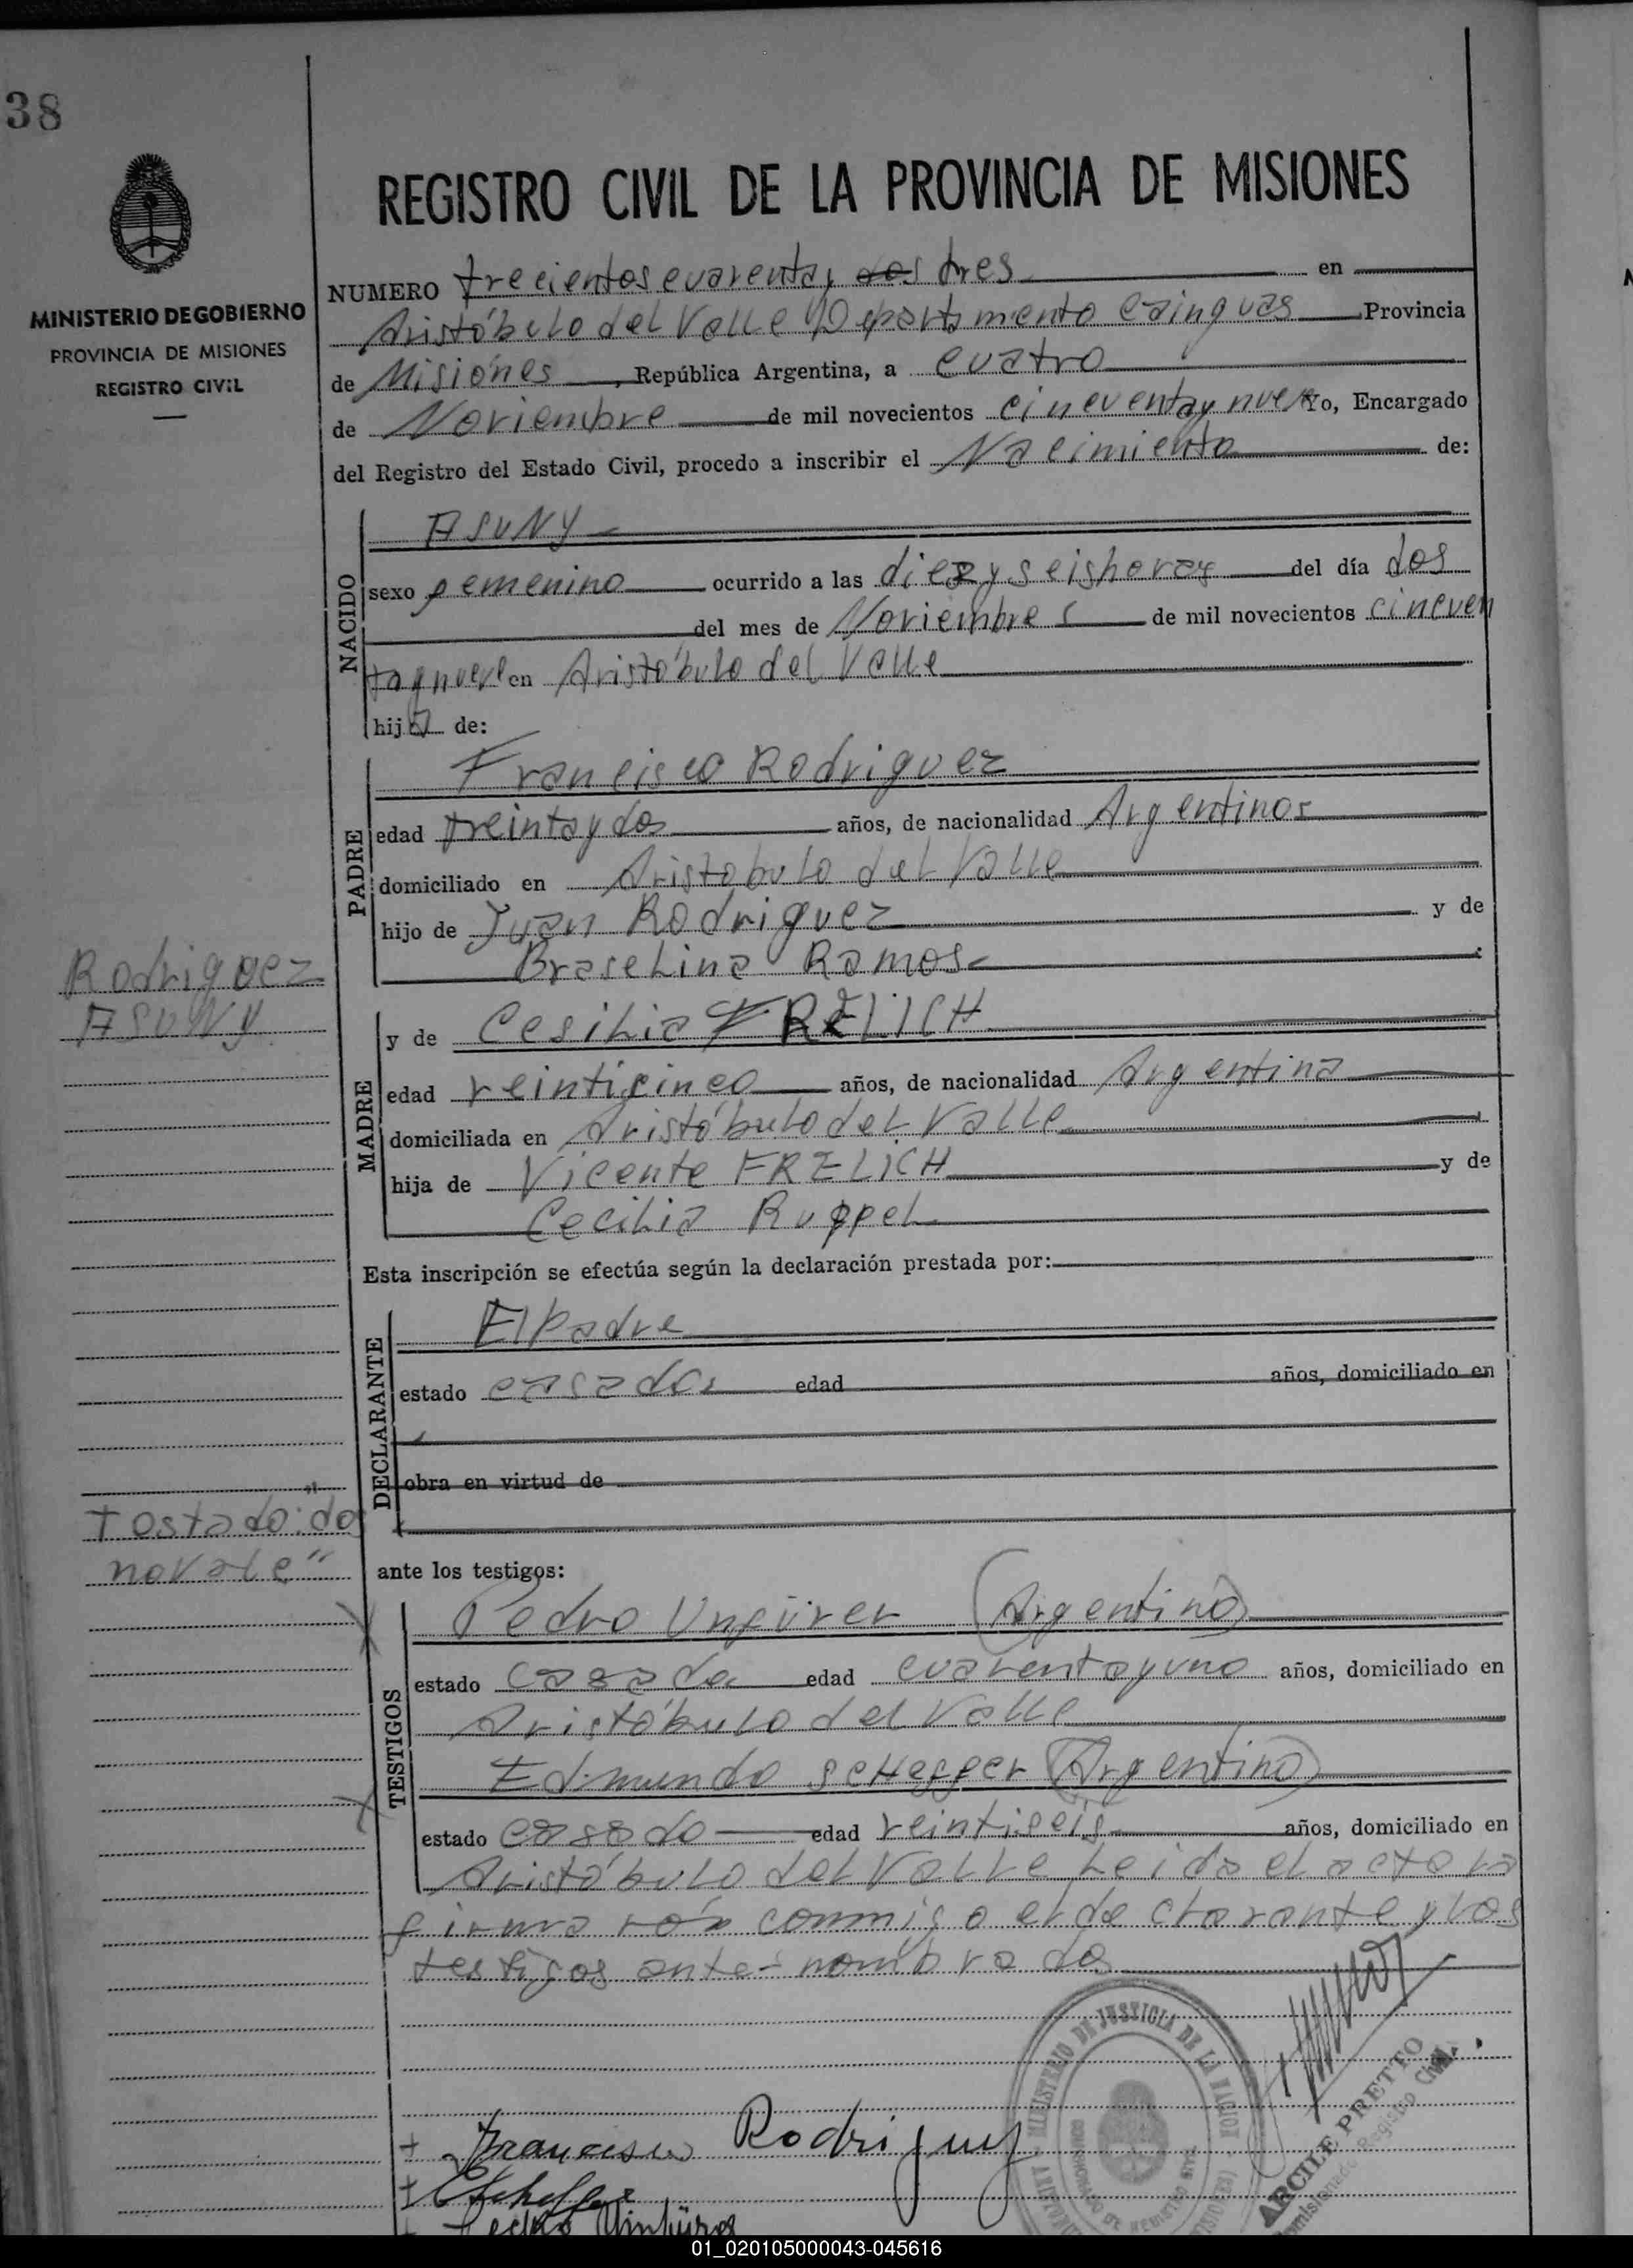 38
REGISTRO CIVIL DE LA PROVINCIA DE MISIONES
MINISTERIO DE GOBIERNO
PROVINCIA DE MISIONES
REGISTRO CIVIL
NUMERO trecientos cuarenta y dos tres en
Aristóbulo del Valle Departamento Cainguas Provincia
de Misiónes, República Argentina, a cuatro
de Noviembre de mil novecientos cincuenta y nueve Yo, Encargado
del Registro del Estado Civil, procedo a inscribir el Nacimiento de:
NACIDO
ASUNY
sexo femenino ocurrido a las diez y seis horas del día dos
del mes de Noviembre de mil novecientos cincuen
ta y nueve en Aristóbulo del Valle
hija de:
PADRE
Francisco Rodriguez
edad treinta y dos años, de nacionalidad Argentino
domiciliado en Aristobulo del Valle
hijo de Juan Rodriguez y de
Braselina Ramos
Rodriguez
ASUNY
MADRE
y de Cesilia FRELICH
edad veinticinco años, de nacionalidad Argentina
domiciliada en Aristóbulo del Valle
hija de Vicente FRELICH y de
Cecilia Ruppel
Esta inscripción se efectúa según la declaración prestada por:
DECLARANTE
El Padre
estado casado edad años, domiciliado en
obra en virtud de
Tostado: "dos
no vale"
ante los testigos:
TESTIGOS
Pedro Unfürer (Argentino)
estado casado edad cuarenta y uno años, domiciliado en
Aristóbulo del Valle
Edmundo scheffer (Argentino)
estado casado edad veintiseis años, domiciliado en
Aristóbulo del Valle Leida el acta la
firmarón conmigo el declarante y los
testigos ante-nombrados
MINISTERIO DE JUSTICIA DE LA NACION
Francisco Rodriguez
ARCILE PRETTO
Registro Civil
Scheffer
Pedro
01_020105000043-045616